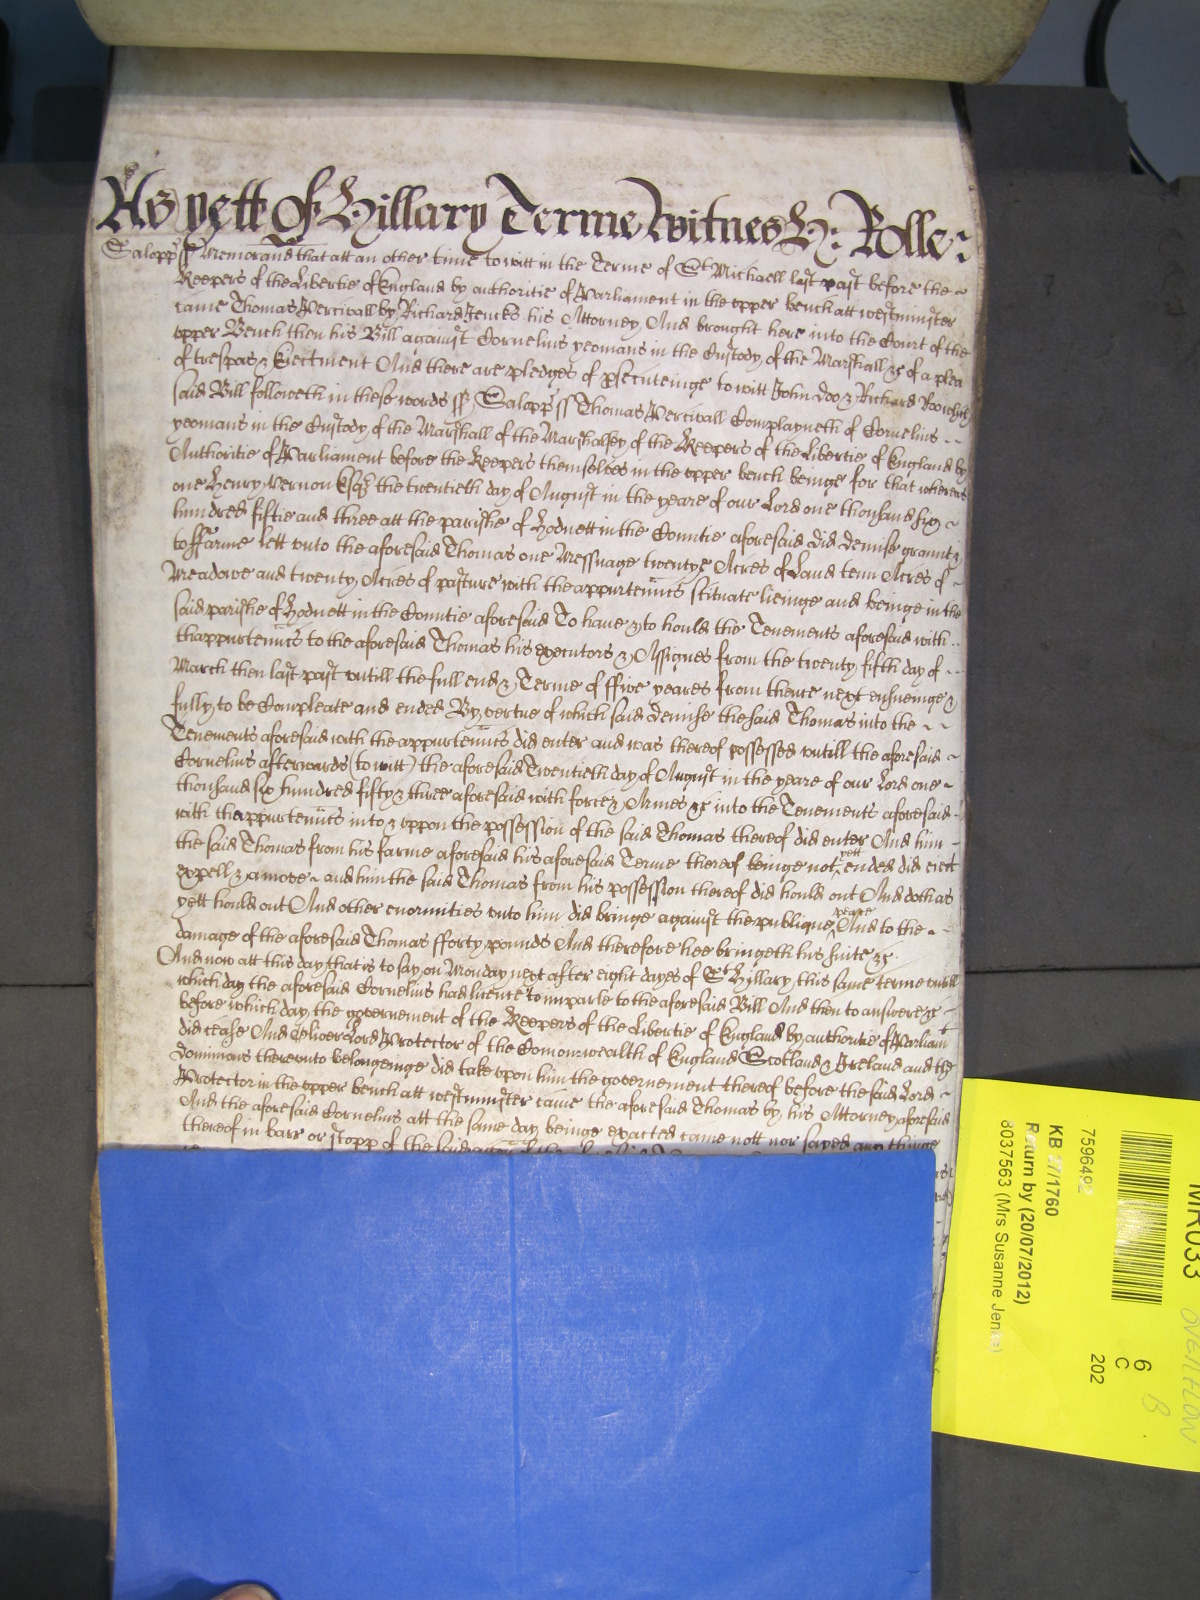 As yett Of Hillary Terme Witnes H: Rolle:
Salopp ss Memorand that att an other time to witt in the Terme of St Michaell last past before the
Keepers of the Libertie of England by authoritie of Parliament in the upper bench att westminster
came Thomas Percivall by Richard Jencks his Attorney And brought here into the Court of the
upper Bench then his Bill against Cornelius yeomans in the Custody of the Marshall &c of a plea
of trespas & Eiectment And there are pledges of psecuteinge to witt John doo & Richard Roo which
said Bill followeth in these words ss Salopp ss Thomas Percivall Complayneth of Cornelius
yeomans in the Custody of the Marshall of the Marshalsey of the Keepers of the Libertie of England by
Authoritie of Parliament before the Keepers themselves in the upper bench beinge for that whereas
one Henry Vernon Esqr the twentieth day of August in the yeare of our Lord one thousand six
hundred fiftie and three att the parishe of Hodnett in the Countie aforesaid did demise graunt &
to ffarme lett unto the aforesaid Thomas one Messuage twentye Acres of Land tenn Acres of
Meadowe and twenty Acres of pasture with the appurtenncs scituate lieinge and beinge in the
said parishe of Hodnett in the Countie aforesaid To have & to hould the Tenements aforesaid with
thappurtenncs to the aforesaid Thomas his executors & Assignes from the twenty fifth day of
March then last past untill the full end & Terme of ffive yeares from thence next ensueinge &
fully to be Compleate and ended By vertue of which said demise the said Thomas into the
Tenements aforesaid with the appurtenncs did enter and was thereof possessed untill the aforesaid
Cornelius afterwards (to witt) the aforesaid Twentieth day of August in the yeare of our Lord one
thousand six hundred fifty & three aforesaid with force & Armes &c into the Tenements aforesaid
with thappurtenncs into & uppon the possession of the said Thomas thereof did enter And him
the said Thomas from his farme aforesaid his aforesaid Terme thereof beinge not yett ended did eiect
expell & amove and him the said Thomas from his possession thereof did hould out And doth as
yett hould out And other enormities unto him did bringe against the publique peace And to the
damage of the aforesaid Thomas fforty pounds And therefore hee bringeth his suite &c
And now att this day that is to say on Monday next after eight dayes of St Hillary this same terme untill
which day the aforesaid Cornelius had licence to imparle to the aforesaid Bill And then to answere &c
before which day the governement of the Keepers of the Libertie of England by authoritie of Parliamt
did cease And Oliver Lord Protector of the Comonwealth of England Scotland & Ireland and the
dominions thereunto belongeinge did take upon him the governement thereof before the said Lord
Protector in the upper bench att westminster came the aforesaid Thomas by his Attorney aforesaid
And the aforesaid Cornelius att the same day beinge exacted came nott nor sayed any thinge
thereof in barr or stopp of the said
MR033
OVERFLOW
B
6
C
202
KB 27/1760
Return by (20/07/2012)
8037563 (Mrs Susanne Jen